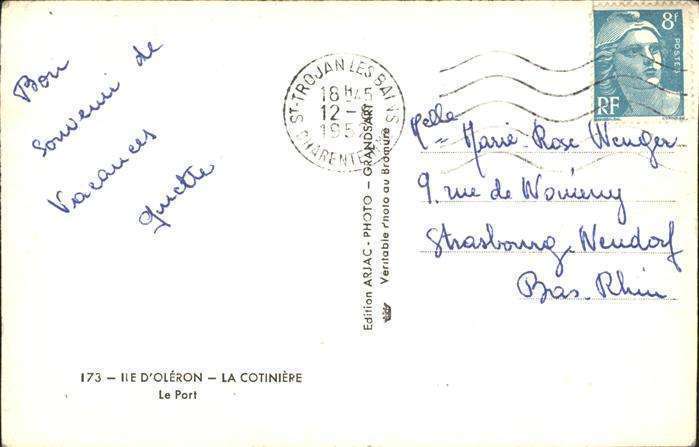 Bon
Souvenir de
Vacances
173 — ILE D'OLÉRON — LA COTINIÈRE
Le Port
Edition ARJAC - PHOTO - GRANDSART
Véritable Photo au Bromure
ST-TROJAN LES BAINS
18 H 45
12 -
1952
CHARENTE
8f
POSTES
RF
Melle Marie-Rose Wenger
9, rue de
Strasbourg-Neudorf
Bas-Rhin